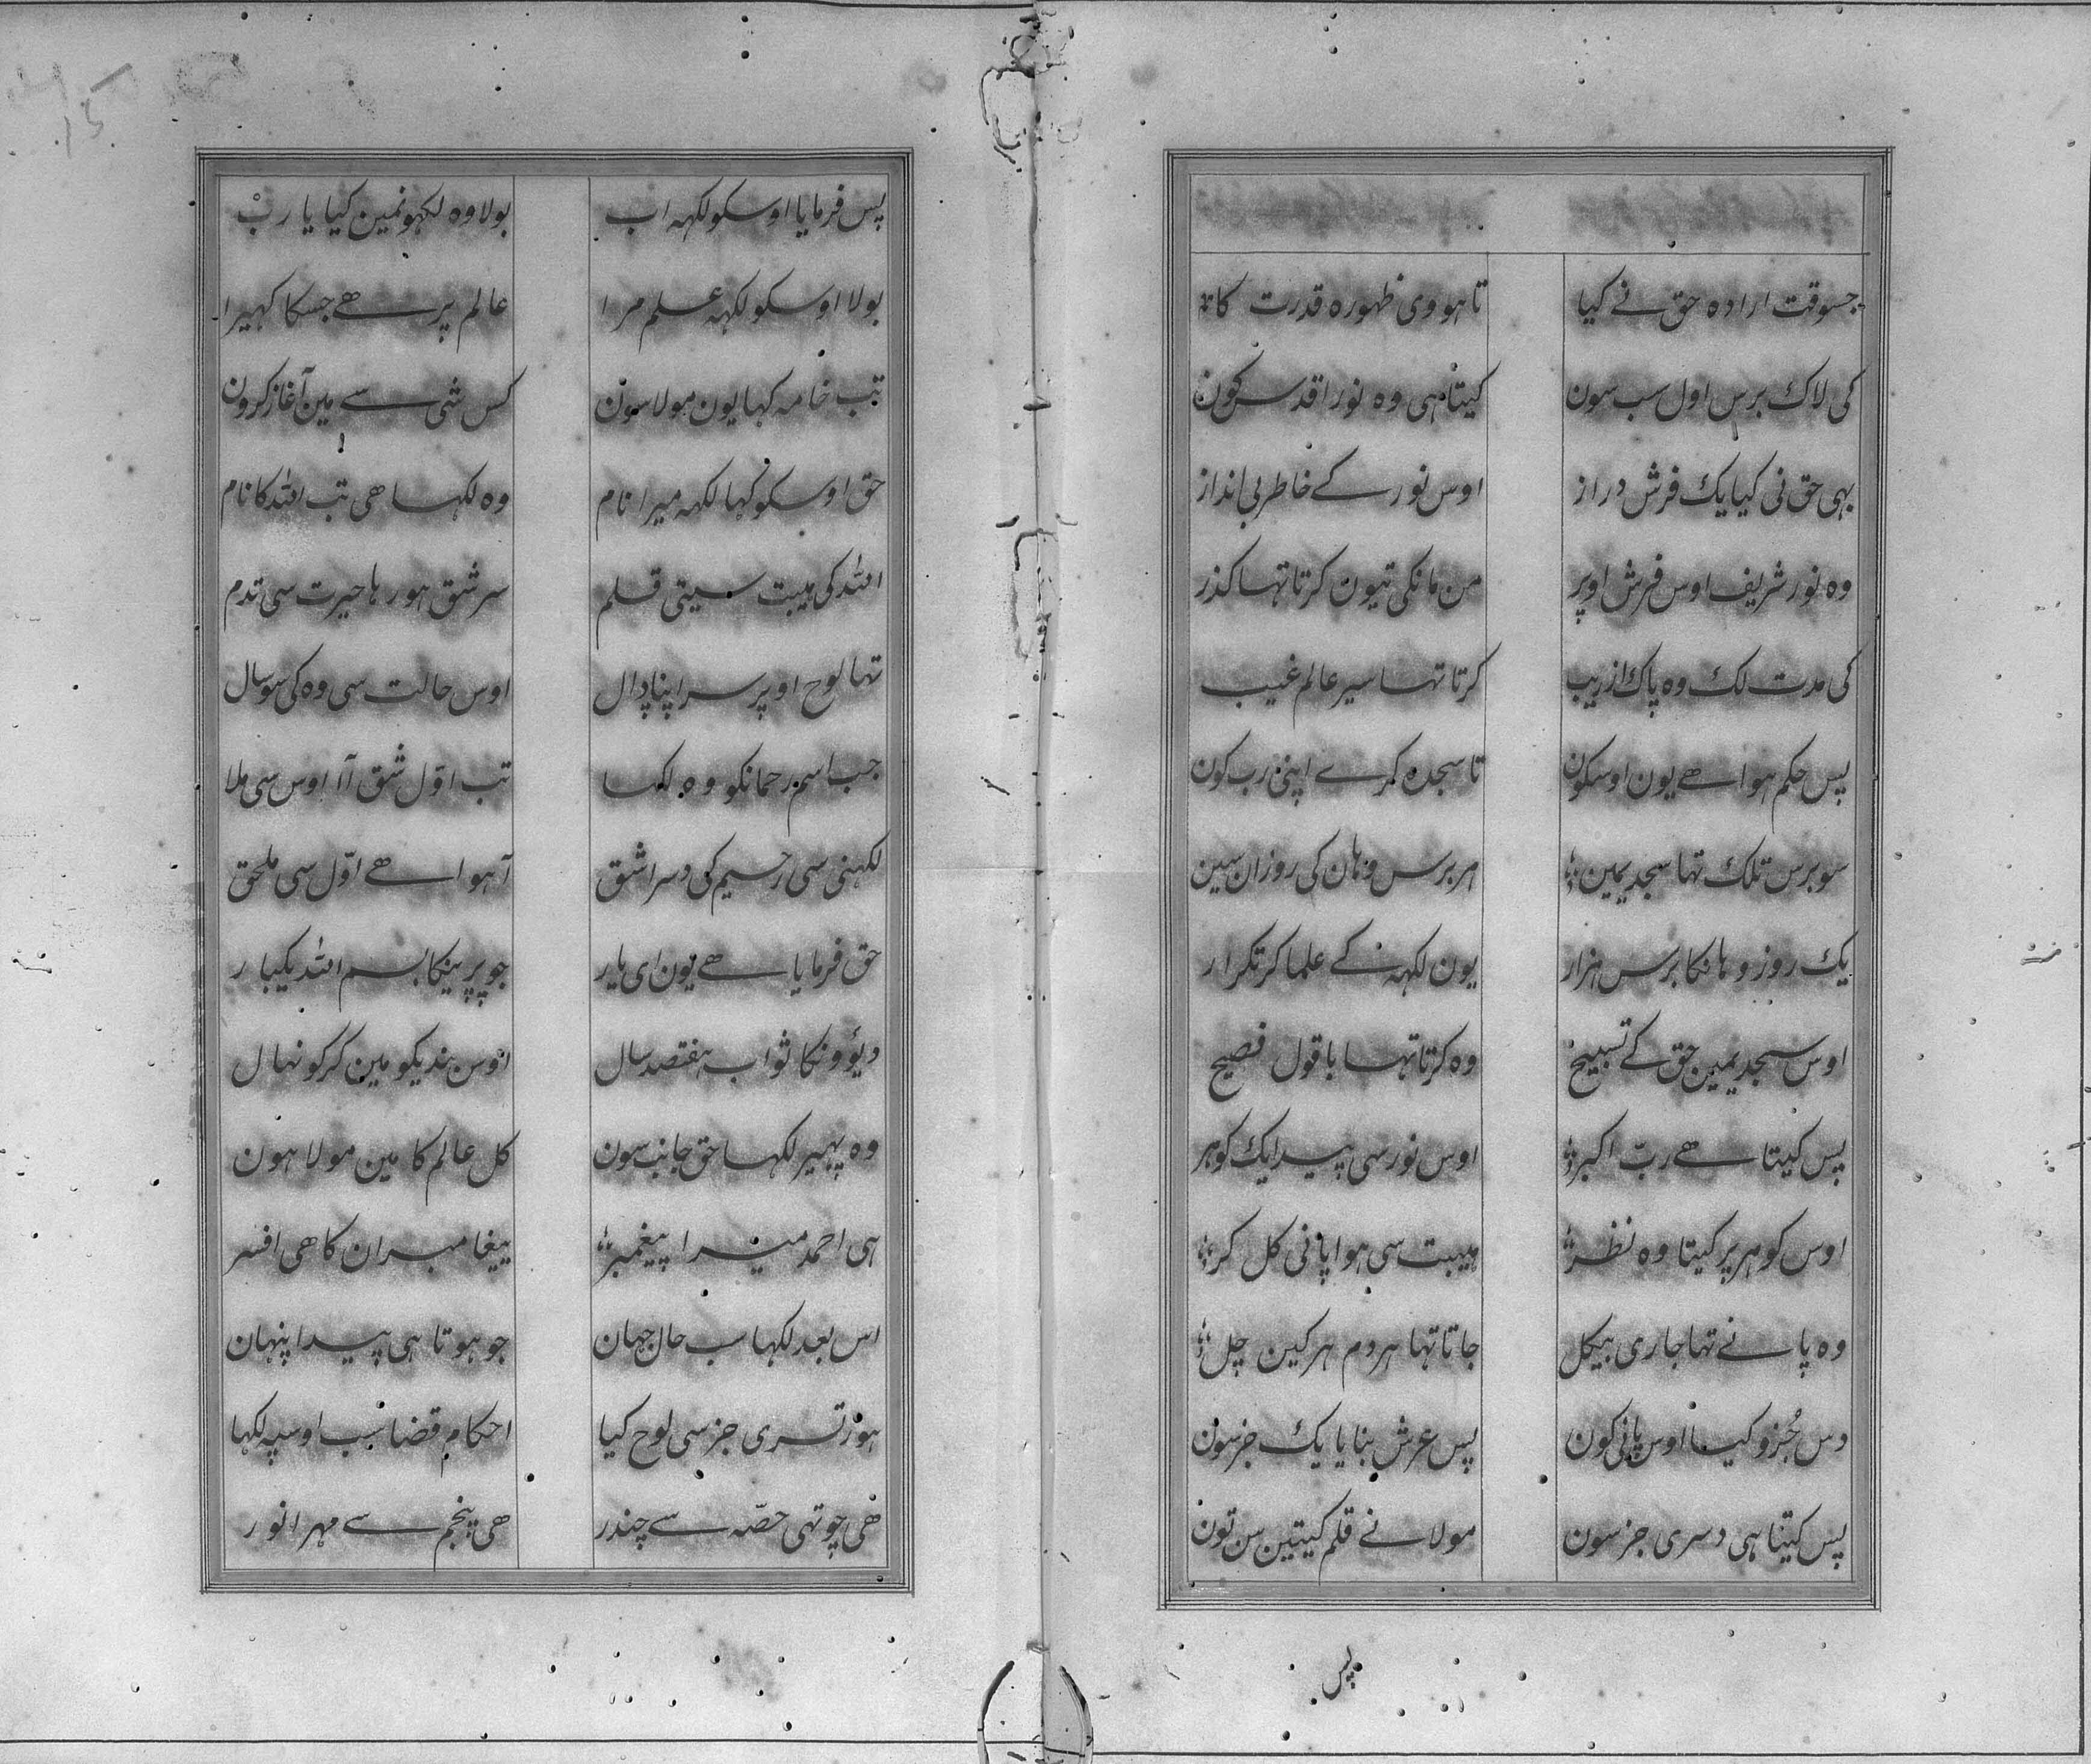 جسوقت ارادہ حق نے کیا تا ہووی ظہورہ قدرت کا
کی لاک برس اول سب سون کیتا ہی وہ نور اقدس کون
بہی حق نی کیا یک فرش دراز اوس نور کے خاطر بی انداز
وہ نور شریف اوس فرش اوپر من مانکی تیون کرتا تہا کذر
کی مدت لک وہ پاک از ریب کرتا تہا سیر عالم غیب
پس حکم ہوا ھے یون اوسکون تا سجدہ کرے اپنی رب کون
سو برس تلک تہا سجدیمین ہر برس وہان کی روزان سین
یک روز وہانکا برس ہزار یون لکہہ کے علما کر تکرار
اوس سجدیمین حق کے تسبیح وہ کرتا تہا باقول فصیح
پس کیتا ھے ربّ اکبر اوس نور سی پیدا یک کوہر
اوس کوہر پر کیتا وہ نظر ہیبت سی ہوا پانی کل کر
وہ پانے تہا جاری بیکل جاتا تہا ہر دم ہر کین چل
دس جُزو کیا اوس پانی کون پس عرش بنایا یک جز سون
پس کیتا ہی دسری جز سون مولا نے قلم کیتین سن تون
پس
پس فرمایا اوسکو لکہہ اب بولا وہ لکہو نمین کیا یا ربْ
بولا اوسکو لکہہ علم مرا عالم پر ھے جسکا کہیرا
تب خامہ کہا یون مولا سون کس شی سے مین آغاز کرون
حق اوسکو کہا لکہہ میرا نام وہ لکہا ھی تب اللہ کا نام
اللہ کی ہیبت سیتی قلم سر شق ہو رہا حیرت سی تدم
تہا لوح اوپر سر اپنا ڈال اوس حالت سی وہ کی سو سال
جب اسم رحمانکو وہ لکہا تب اوّل شق آ اوس سی ملا
لکہنی سی رحیم کی دسرا شق آ ہوا ھے اوّل سی ملحق
حق فرمایا ھے یون ای یار جو پڑہیگا بسم اللہ یکبار
دیوٴونکا ثواب ہفتصد سال اوس بندیکو مین کر کو نہال
وہ پہیر لکہا حق جانب سون کل عالم کا مین مولا ہون
ہی احمد میرا پیغمبر پیغامبران کا ھی افسر
اس بعد لکہا سب حال جہان جو ہوتا ہی پیدا پنہان
ہور تسری جز سی لوح کیا احکام قضا سب اوسپہ لکہا
ھی چوتہی حصّہ سے چندر ھی پنجم سے مہر انور